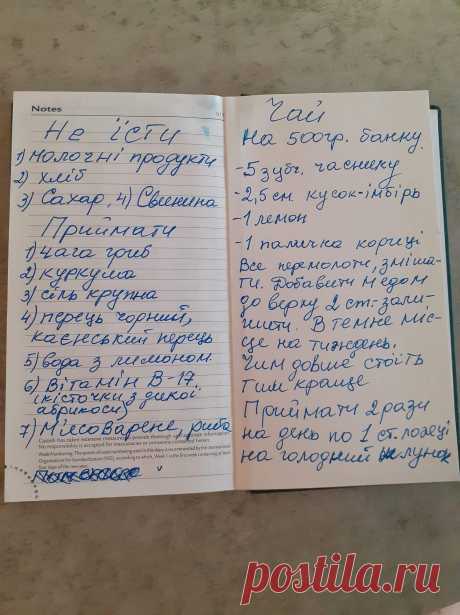 Notes
Не їсти
1) молочні продукти
2) хліб
3) Сахар, 4) Свинина
Приймати
1) чага гриб
2) куркума
3) сіль крупна
4) перець чорний,
каєнський перець
5) вода з лимоном
6) Вітамін В-17
(кісточки з дикої
абрикоси)
7) Мясо варене, риба
Чай
На 500гр. банку.
-5 зубч. часнику
-2,5 см кусок-імбірь
-1 лемон
-1 паличка кориці
Все перемолоти, зміша-
ти. Добавити медом
до верху 2 ст. зали-
шити. В темне міс-
це на тиждень.
Чим довше стоїть
тим краще
Приймати 2 рази
на день по 1 ст. ложці
на голодний шлунок
POSTILA.RU